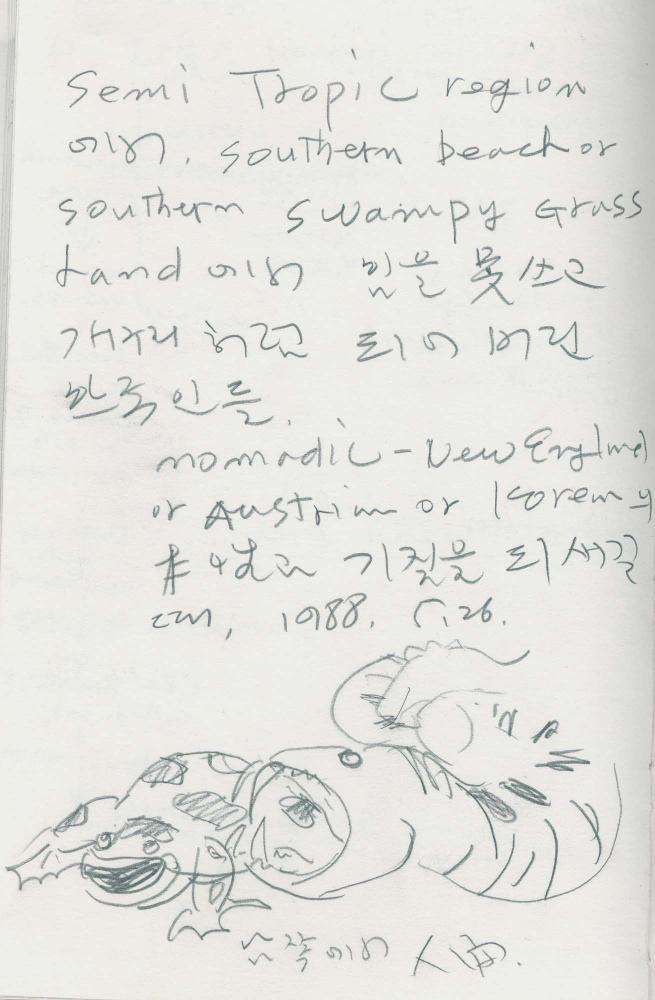 Semi Tropic region
에서. southern beach or
southern swampy Grass
Land 에서 힘을 못쓰고
개구리 처럼 되어 버린
한국인들.
nomadic - New England
or Austrian or Korean 의
기질을 되새길
때, 1988. 5.26.
에서